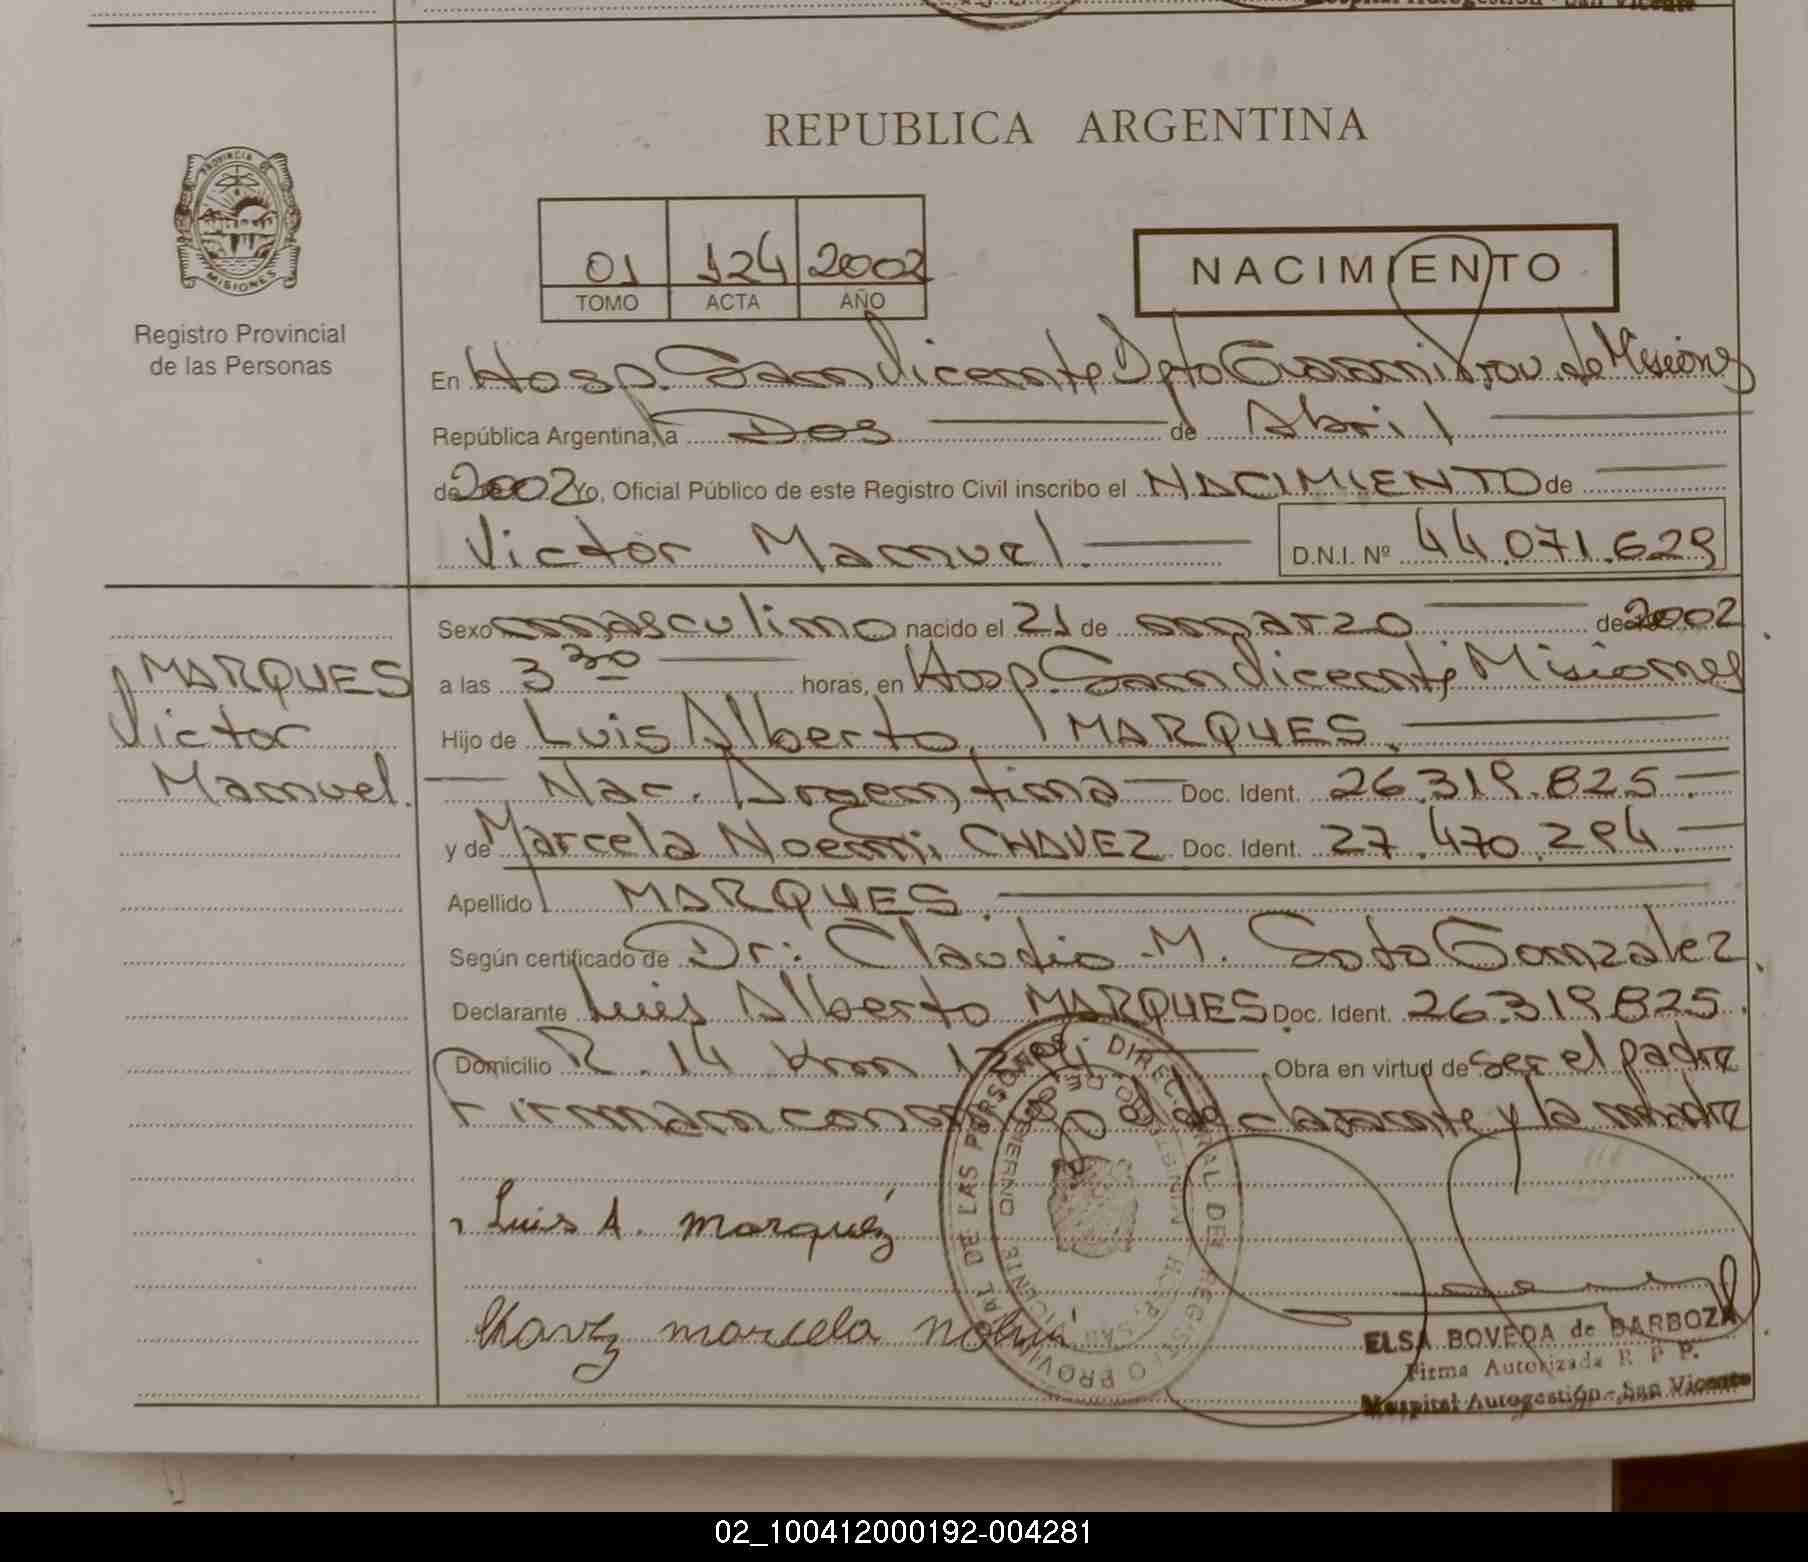 Hospital Autogestión - San Vicente
REPUBLICA ARGENTINA
PROVINCIA DE
MISIONES
Registro Provincial
de las Personas
01 124 2002
TOMO ACTA AÑO
NACIMIENTO
En Hosp. San Vicente Dpto Guarani Prov. de Misiones
República Argentina, a Dos de Abril
de 2002 Yo, Oficial Público de este Registro Civil inscribo el NACIMIENTO de
Victor Manuel. D.N.I. Nº 44.071.629
Sexo masculino nacido el 21 de marzo de 2002
MARQUES
Victor
Manuel.
a las 3 30 horas, en Hosp. San Vicente Misiones
Hijo de Luis Alberto MARQUES.
Nac. Argentina Doc. Ident. 26.319.825.
y de Marcela Noemi CHAVEZ Doc. Ident. 27.470.294.
Apellido MARQUES.
Según certificado de Dr: Claudio M. Soto Gonzalez
Declarante Luis Alberto MARQUES Doc. Ident. 26.319.825.
Domicilio R. 14 Km Obra en virtud de ser el padre
Firman conmigo el declarante y la madre
Luis A. marquéz
Chavez marcela
ELSA BOVEDA de BARBOZA
Firma Autorizada R. P. P.
Hospital Autogestión - San Vicente
02_100412000192-004281